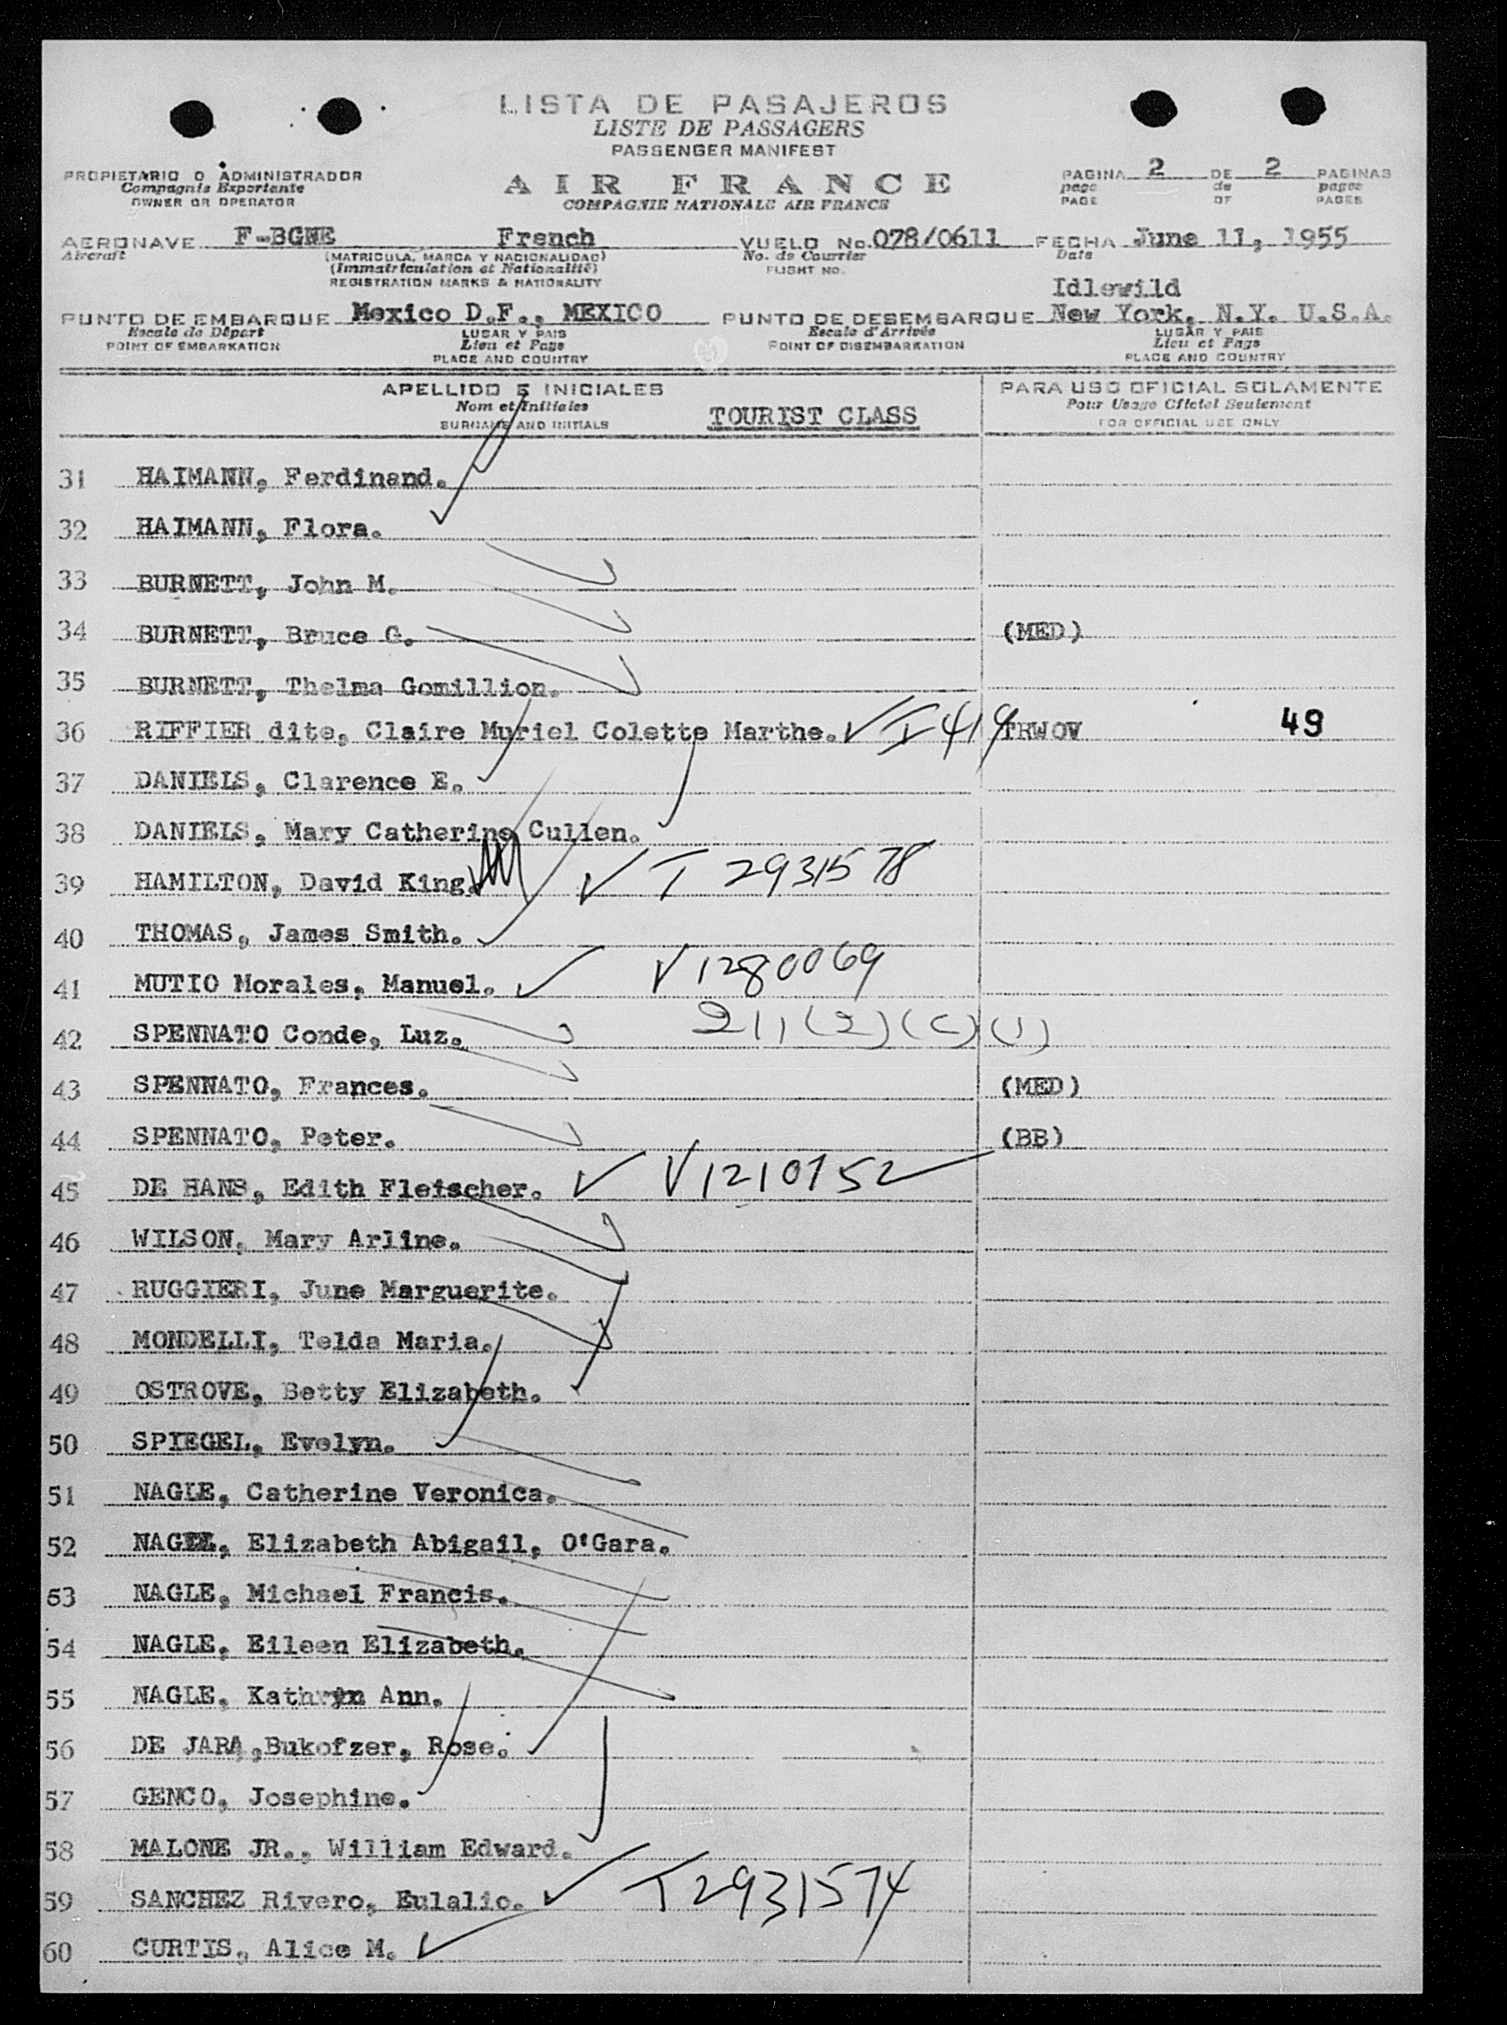 LISTA DE PASAJEROS
LISTE DE PASSAGERS
PASSENGER MANIFEST
PROPIETARIO O ADMINISTRADOR
Compagnie Exportante
OWNER OR OPERATOR
AIR FRANCE
COMPAGNIE NATIONALE AIR FRANCE
PAGINA 2 DE 2 PAGINAS
page de pages
PAGE OF PAGES
AERONAVE F-BGNE French VUELO No. 078/0611 FECHA June 11, 1955
Aircraft (MATRICULA, MARCA Y NACIONALIDAD) No. de Courrier Date
(Immatriculation et Nationalité) FLIGHT NO.
REGISTRATION MARKS & NATIONALITY
Idlewild
PUNTO DE EMBARQUE Mexico D.F., MEXICO PUNTO DE DESEMBARQUE New York, N.Y. U.S.A.
Escale de Départ LUGAR Y PAIS Escale d'Arrivée LUGAR Y PAIS
POINT OF EMBARKATION Lieu et Pays POINT OF DISEMBARKATION Lieu et Pays
PLACE AND COUNTRY PLACE AND COUNTRY
APELLIDO E INICIALES PARA USO OFICIAL SOLAMENTE
Nom et Initiales TOURIST CLASS Pour Usage Officiel Seulement
SURNAME AND INITIALS FOR OFFICIAL USE ONLY
31 HAIMANN, Ferdinand.
32 HAIMANN, Flora.
33 BURNETT, John M.
34 BURNETT, Bruce G. (MED)
35 BURNETT, Thelma Gomillion.
36 RIFFIER dite, Claire Muriel Colette Marthe. I 419 TRWOV 49
37 DANIELS, Clarence E.
38 DANIELS, Mary Catherine Cullen.
39 HAMILTON, David King. T 2931578
40 THOMAS, James Smith.
41 MUTIO Morales, Manuel. V1280069
42 SPENNATO Conde, Luz. 211(2)(C)(1)
43 SPENNATO, Frances. (MED)
44 SPENNATO, Peter. (BB)
45 DE HANS, Edith Fleischer. V1210752
46 WILSON, Mary Arline.
47 RUGGIERI, June Marguerite.
48 MONDELLI, Telda Maria.
49 OSTROVE, Betty Elizabeth.
50 SPIEGEL, Evelyn.
51 NAGLE, Catherine Veronica.
52 NAGLE, Elizabeth Abigail, O'Gara.
53 NAGLE, Michael Francis.
54 NAGLE, Eileen Elizabeth.
55 NAGLE, Kathryn Ann.
56 DE JARA, Bukofzer, Rose.
57 GENCO, Josephine.
58 MALONE JR., William Edward.
59 SANCHEZ Rivero, Eulalio. T2931574
60 CURTIS, Alice M.